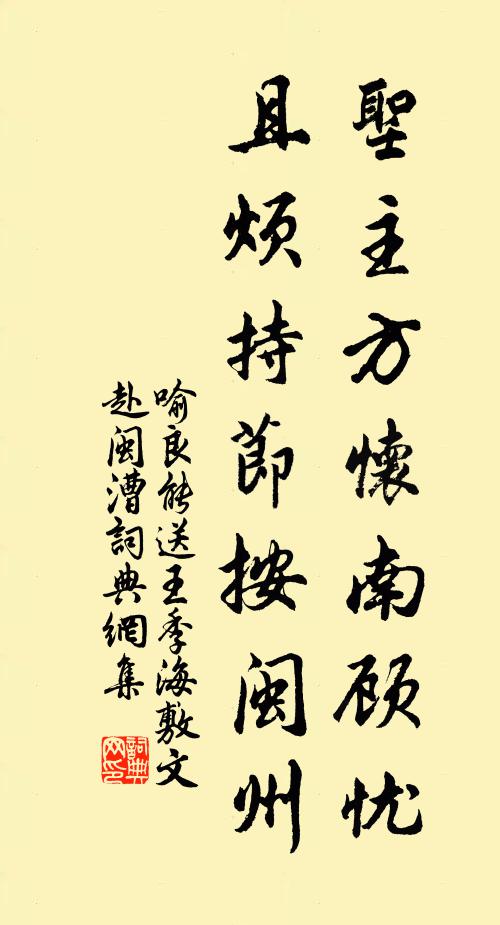 聖主方懷南顧忧
且煩持節按閩州
喻良能送王季海敷文
赴閩漕詞典網集
詞典网印